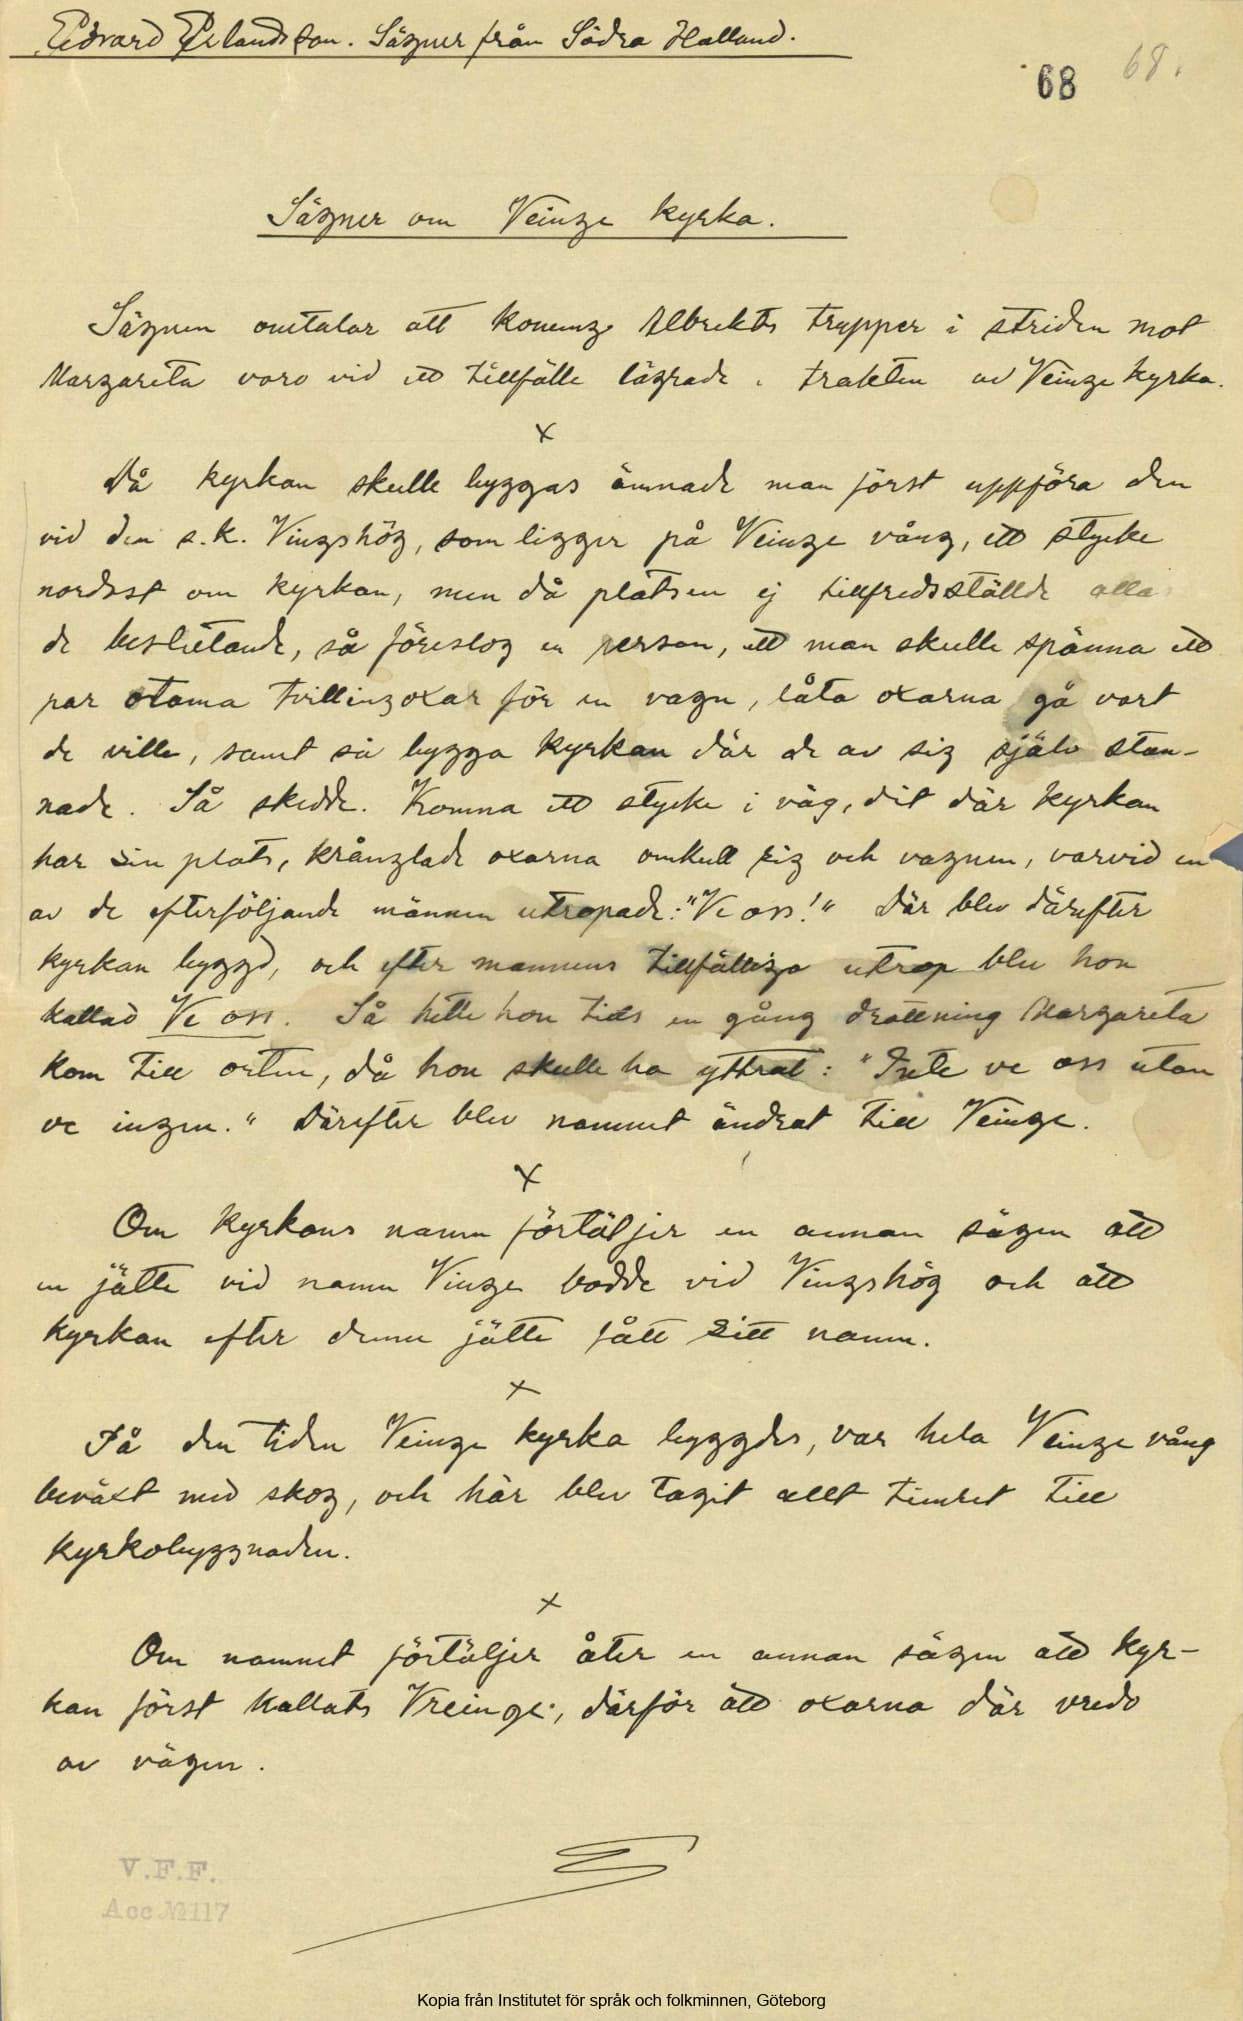 Edvard Erlandsson. Sägner från Södra Halland.
68 68.
Sägner om Veinge kyrka.
Sägnen omtalar att konung Albrekts trupper i striden mot
Margareta voro vid ett tillfälle lägrade i trakten av Veinge kyrka.
x
Då kyrkan skulle byggas ämnade man först uppföra den
vid den s.k. Vingshög, som ligger på Veinge vång, ett stycke
nordost om kyrkan, men då platsen ej tillfredsställde alla
de beslutande, så föreslog en person, att man skulle spänna ett
par otama tvillingoxar för en vagn, låta oxarna gå vart
de ville, samt så bygga kyrkan där de av sig själv stan-
nade. Så skedde. Komna ett stycke i väg, dit där kyrkan
har sin plats, krånglade oxarna omkull sig och vagnen, varvid en
av de efterföljande männen utropade: "Ve oss!" Där blev därefter
kyrkan byggd, och efter mannens tillfälliga utrop blev hon
kallad Ve oss. Så hette hon tills en gång drottning Margareta
kom till orten, då hon skulle ha yttrat: "Inte ve oss utan
ve ingen." Därefter blev namnet ändrat till Veinge.
x
Om kyrkans namn förtäljer en annan sägen att
en jätte vid namn Vinge bodde vid Vingshög och att
kyrkan efter denne jätte fått sitt namn.
x
På den tiden Veinge kyrka byggdes, var hela Veinge vång
beväxt med skog, och här blev tagit allt timret till
kyrkobyggnaden.
x
Om namnet förtäljer åter en annan sägen att kyr-
kan först kallats Vreinge, därför att oxarna där vredo
av vägen.
V.F.F.
Acc №117
Kopia från Institutet för språk och folkminnen, Göteborg